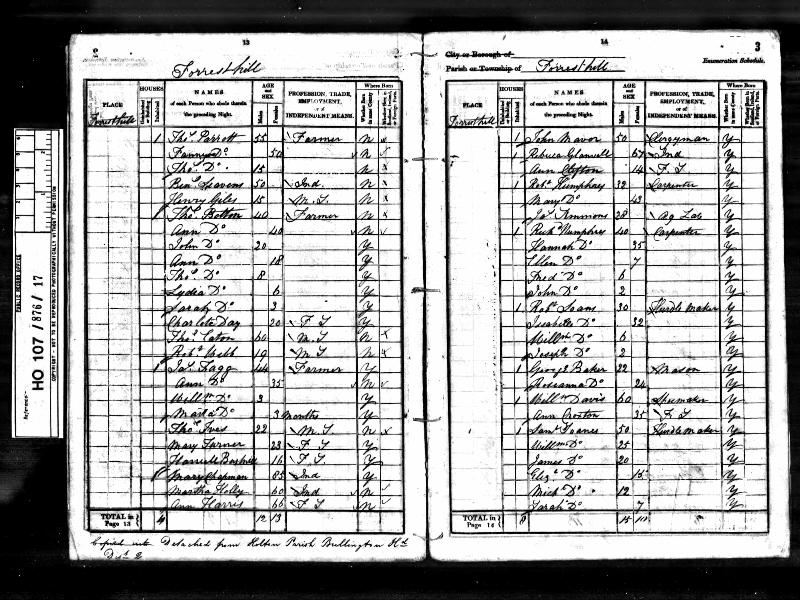 2
13
Forresthill
PLACE
HOUSES
Uninhabited or Building
Inhabited
NAMES of each Person who abode therein the preceding Night.
AGE and SEX
Males
Females
PROFESSION, TRADE, EMPLOYMENT, or of INDEPENDENT MEANS.
Where Born
Whether Born in same County
Whether Born in Scotland, Ireland, or Foreign Parts.
Forresthill 1 Thos. Parrott 55 Farmer N
Fanny Do 50 N
Thos. Do 15 N
Benj. Seavens 50 Ind. N
Henry Giles 15 M.S. N
1 Thos. Botton 40 Farmer N
Ann Do 40 N
John Do 20 Y
Ann Do 18 Y
Thos. Do 8 Y
Lydia Do 6 Y
Sarah Do 3 Y
Charlote Day 20 F.S. Y
Thos. Eaton 60 M.S. N
Robt. Webb 19 M.S. N
1 Jas. Fagg 44 Farmer Y
Ann Do 35 N
Willm Do 3 Y
Maria Do 3 months Y
Thos. Ives 22 M.S. N
Mary Turner 23 F.S. Y
Harriett 16 F.S. Y
1 Mary Chapman 85 Ind Y
Martha Holly 60 Ind N
Ann Harris 66 F.S. N
TOTAL in Page 13 4 12 13
Copied into Detached from Holton Parish Bullington Hd
Dist 2
14
3
City or Borough of
Parish or Township of Forresthill
Enumeration Schedule.
PLACE
HOUSES
Uninhabited or Building
Inhabited
NAMES of each Person who abode therein the preceding Night.
AGE and SEX
Males
Females
PROFESSION, TRADE, EMPLOYMENT, or of INDEPENDENT MEANS.
Where Born
Whether Born in same County
Whether Born in Scotland, Ireland, or Foreign Parts.
Forresthill 1 John Mavor 50 Clergyman Y
1 Rebecca Glanvell 67 Ind Y
Ann Clifton 14 F.S. Y
1 Robt. Humphrey 32 Carpenter Y
Mary Do 43 Y
Jas. Simmons 28 Ag Lab Y
1 Richd Humphrey 40 Carpenter Y
Hannah Do 35 Y
Ellen Do 7 Y
Fred Do 6 Y
John Do 2 Y
1 Robt. Soans 30 Hurdle Maker Y
Issabella Do 32 Y
Willm Do 6 Y
Joseph Do 2 Y
1 George Baker 22 Mason Y
Roseanna Do 24 Y
1 Willm Davis 60 Shumaker Y
Ann Croxton 35 F.S. Y
1 Saml. Soanes 50 Hurdle Maker Y
Willm Do 25 Y
James Do 20 Y
Eliz. Do 15 Y
Mich Do 12 Y
Sarah Do 7 Y
TOTAL in Page 14 8 15 10
PUBLIC RECORD OFFICE
Reference:-
HO 107/876/17
COPYRIGHT - NOT TO BE REPRODUCED PHOTOGRAPHICALLY WITHOUT PERMISSION